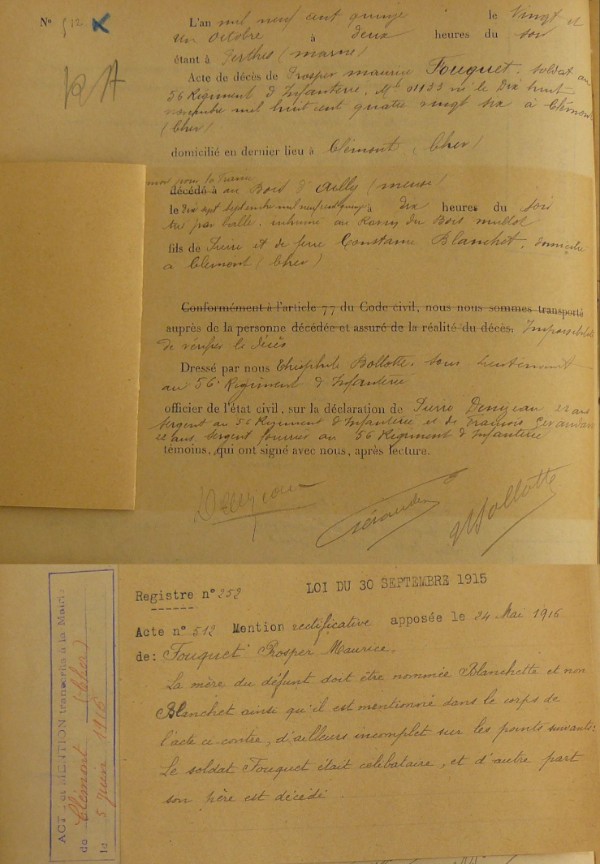 N° 512
L'an mil neuf cent quinze le vingt et
un octobre à deux heures du soir
étant à Perthes (marne)
Acte de décès de Prosper maurice Fouquet, soldat au
56 Régiment d'Infanterie, Mle 01133 né le Dix huit
novembre mil huit cent quatre vingt six à Clémont
(Cher)
domicilié en dernier lieu à Clémont, (Cher)
mort pour la France
décédé à au Bois d'Ailly (meuse)
le dix sept septembre mil neuf cent quinze à dix heures du soir
tué par balle, inhumé au Ravin du Bois mullot
fils de Pierre et de Constance Blanchet, domicilié
à Clémont (Cher)
Conformément à l'article 77 du Code civil, nous nous sommes transporté
auprès de la personne décédée et assuré de la réalité du décès. Impossibilité
de vérifier le décès
Dressé par nous Théophile Bollotte, sous lieutenant
au 56e Régiment d'Infanterie
officier de l'état civil, sur la déclaration de Pierre Denizeau 22 ans
sergent au 56 Régiment d'Infanterie et de François
22 ans Sergent fourrier au 56 Régiment d'Infanterie
témoins, qui ont signé avec nous, après lecture.
LOI DU 30 SEPTEMBRE 1915
Registre n° 252
Acte n° 512 Mention rectificative apposée le 24 Mai 1916
de: Fouquet Prosper Maurice.
La mère du défunt doit être nommée Blanchette et non
Blanchet ainsi qu'il est mentionné dans le corps de
l'acte ci-contre, d'ailleurs incomplet sur les points suivants:
Le soldat Fouquet était célibataire, et d'autre part
son père est décédé
ACTE et MENTION transcrits à la Mairie
de Clémont (Cher)
le 5 juin 1916